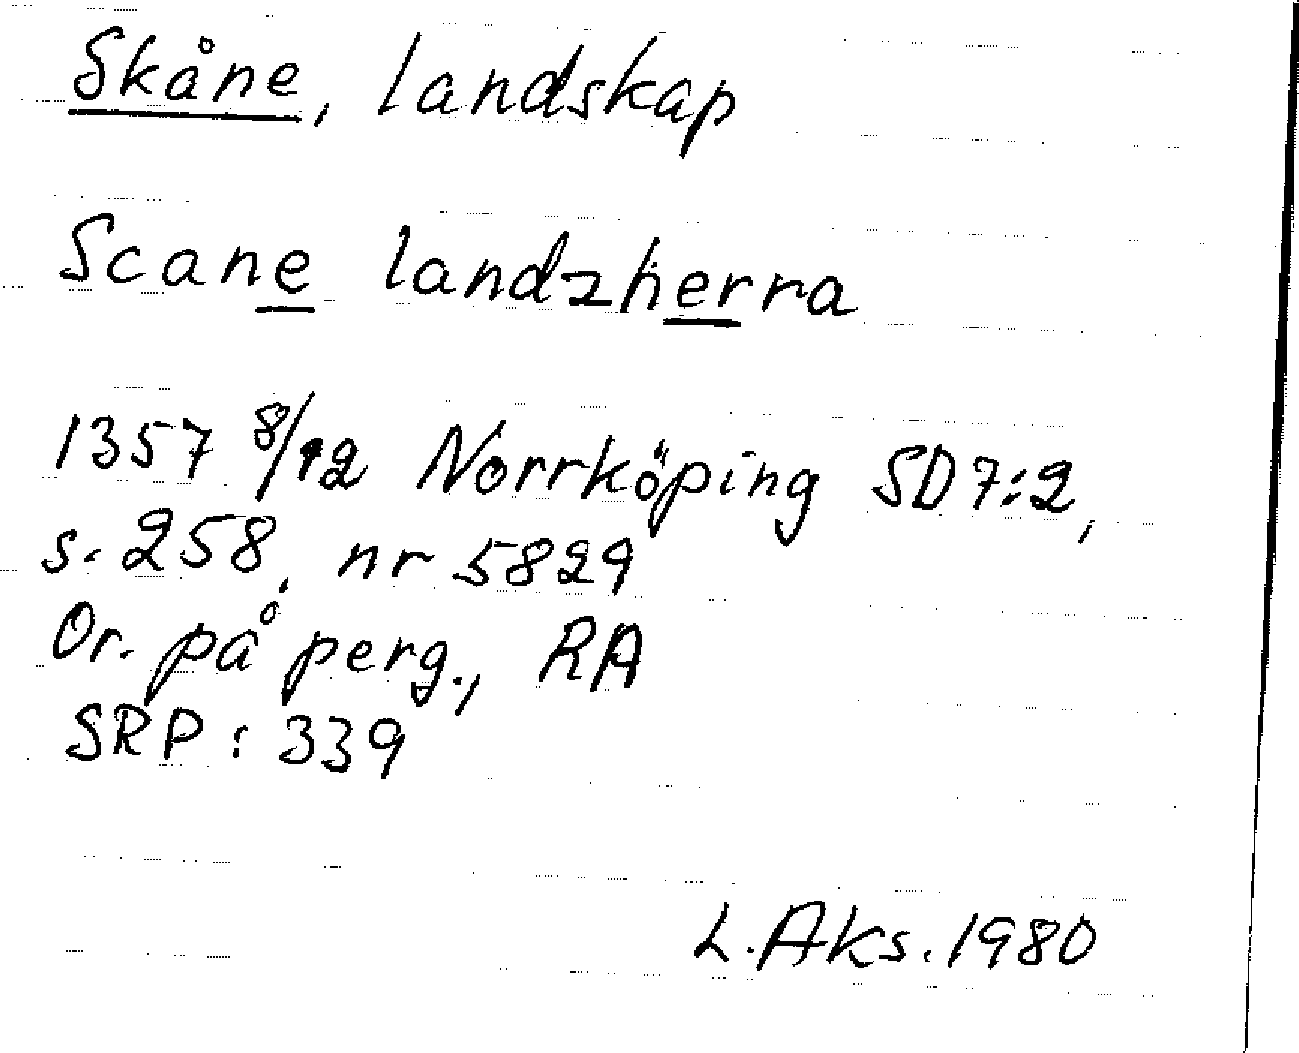 Skåne, landskap
Scane landzherra
1357 8/12 Norrköping SD 7:2,
s. 258, nr 5829
Or. på perg., RA
SRP: 339
L. Aks. 1980